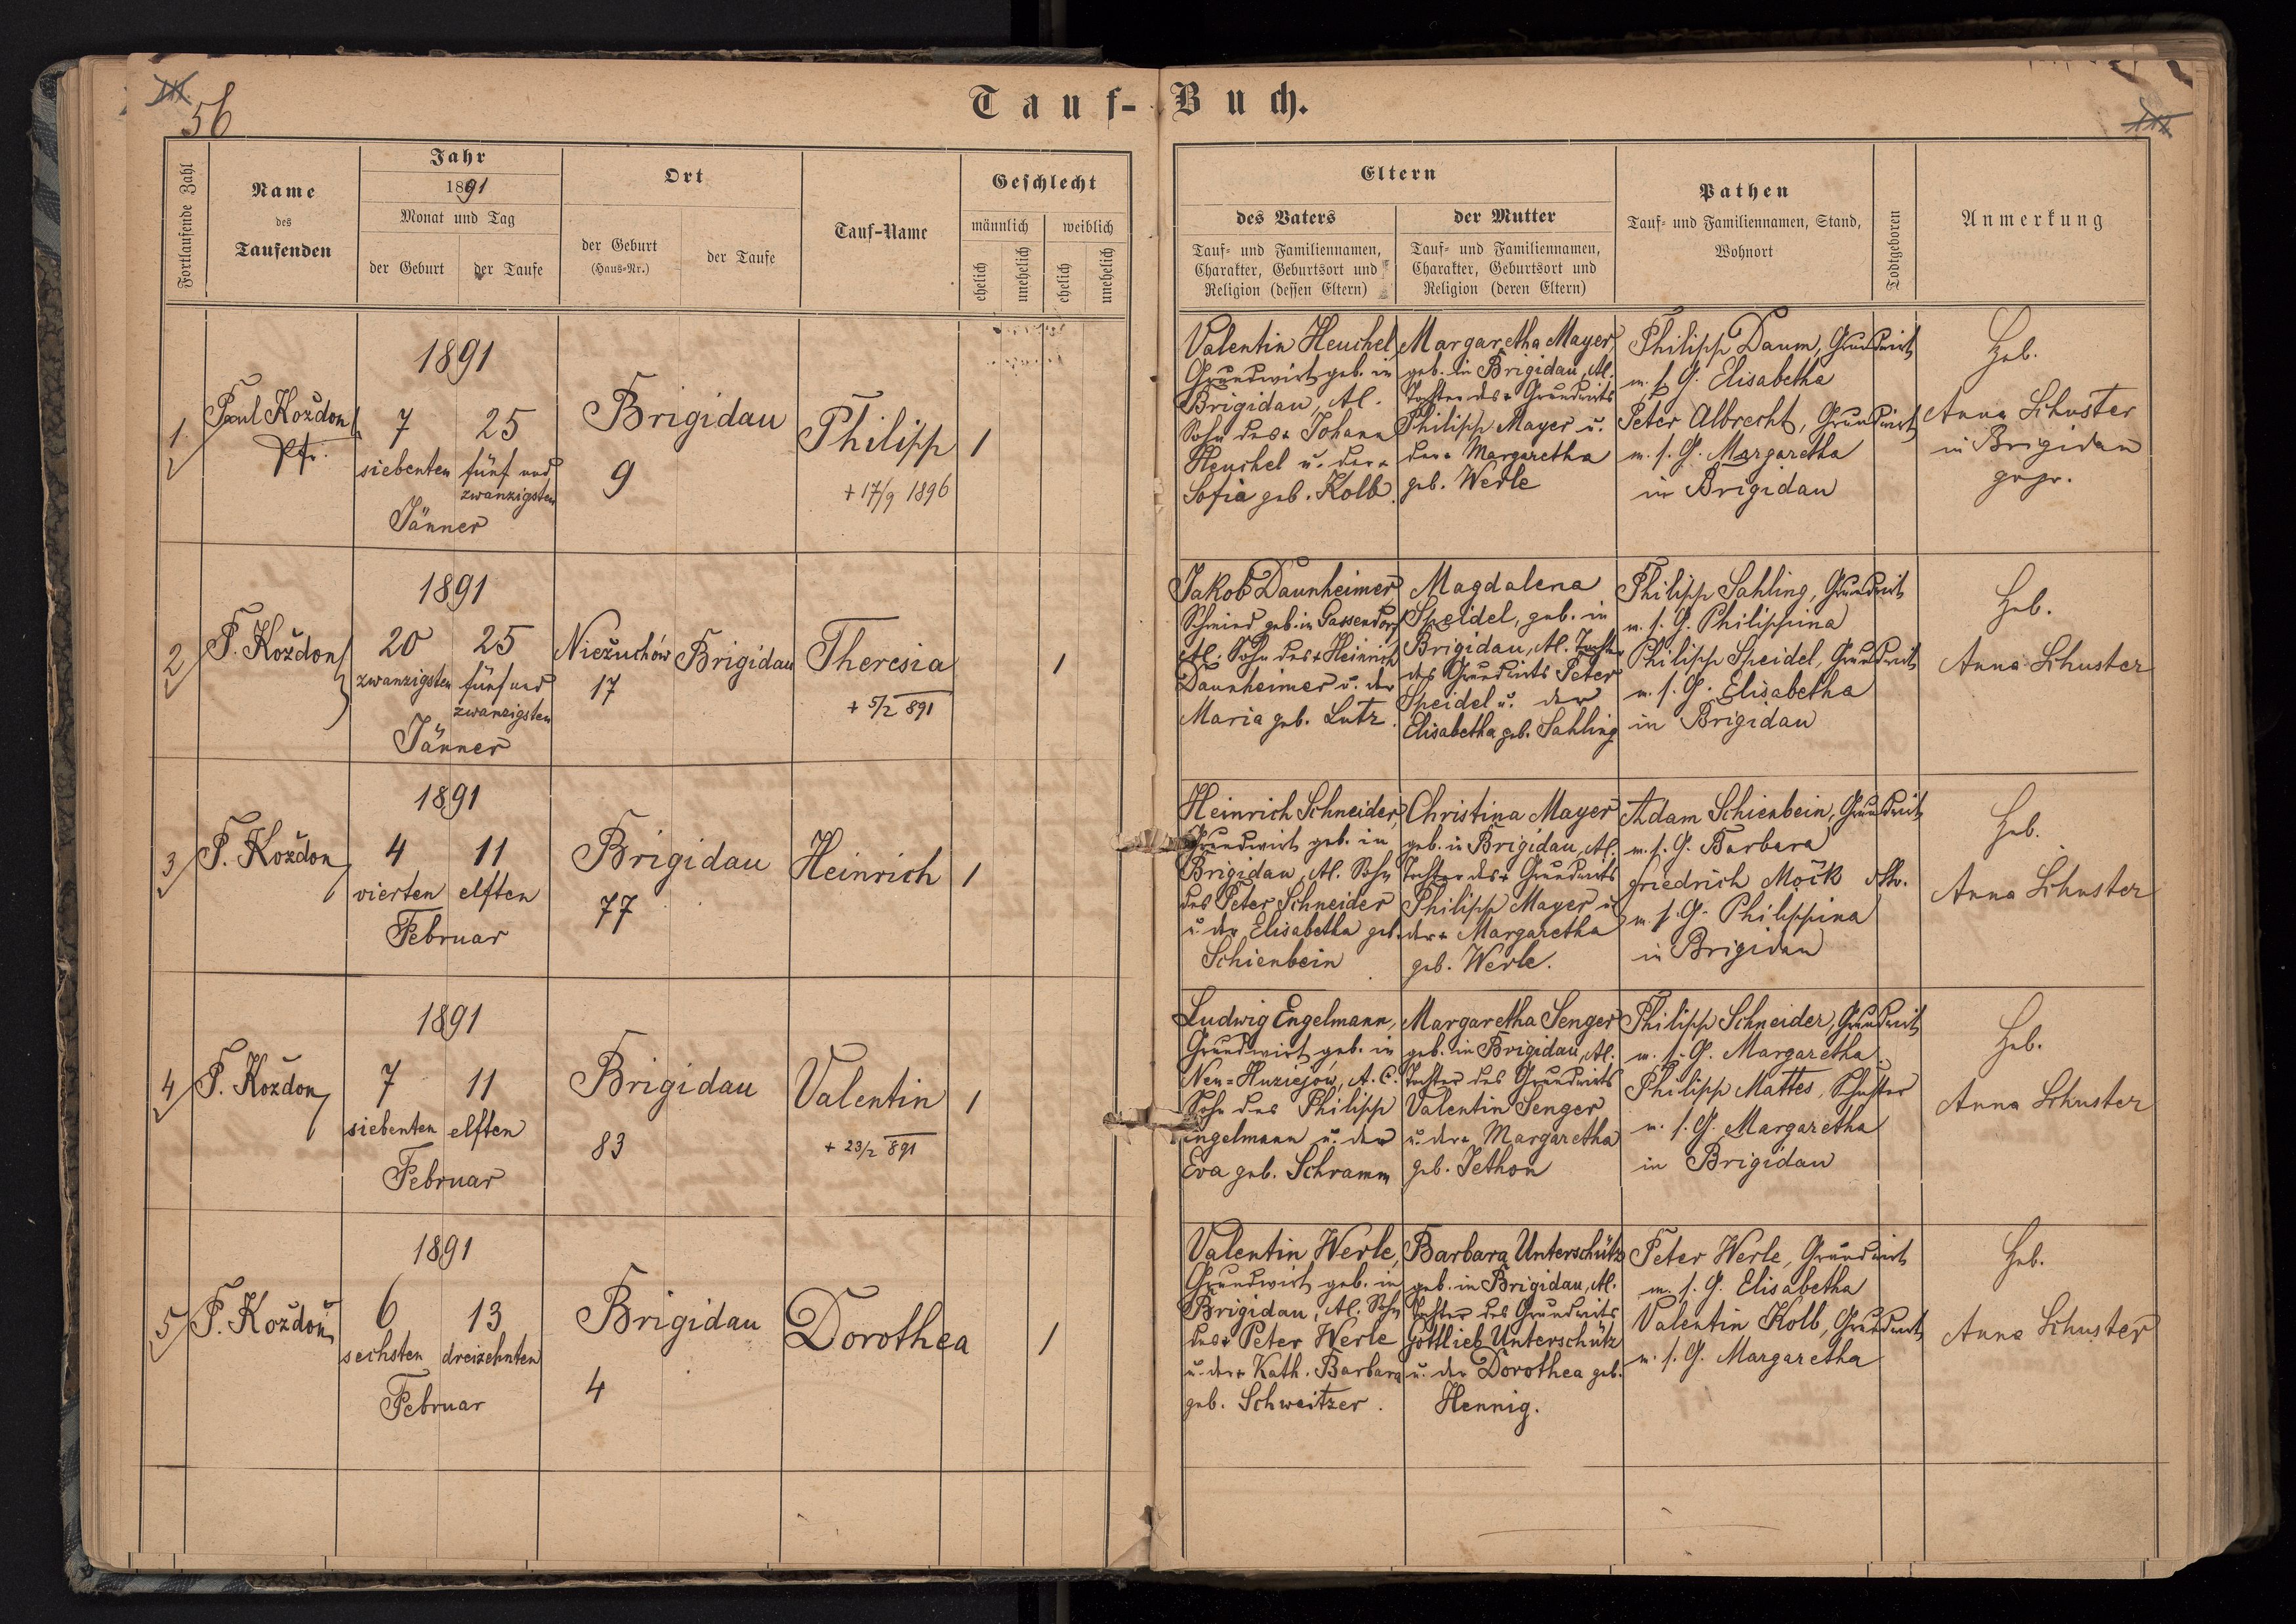 56
Tauf-Buch.
Fortlaufende Zahl
Name
des
Taufenden
Jahr
1891
Monat und Tag
der Geburt
der Taufe
Ort
der Geburt
(Haus-Nr.)
der Taufe
Tauf-Name
Geschlecht
männlich
weiblich
ehelich
unehelich
ehelich
unehelich
Eltern
des Vaters
Tauf- und Familiennamen,
Charakter, Geburtsort und
Religion (dessen Eltern)
der Mutter
Tauf- und Familiennamen,
Charakter, Geburtsort und
Religion (deren Eltern)
Pathen
Tauf- und Familiennamen, Stand,
Wohnort
Todtgeboren
Anmerkung
1
Paul Koždon
Pfr.
1891
7 25
siebenten fünf und
zwanzigsten
Jänner
Brigidau
9
Philipp
+ 17/9 1896
1
Valentin Heuchel
Grundwirt geb. in
Brigidau, AC.
Sohn des + Johann
Heuchel u. der +
Sofia geb. Kolb.
Margaretha Mayer
geb. in Brigidau, AC.
Tochter des + Grundwirts
Philipp Mayer u.
der + Margaretha
geb. Werle
Philipp Daum, Grundwirt
m. s. G. Elisabetha
Peter Albrecht, Grundwirt
m. s. G. Margaretha
in Brigidau
Heb.
Anna Schuster
in Brigidau
gepr.
2
P. Koždon
1891
20 25
zwanzigsten fünf und
zwanzigsten
Jänner
Niežuchów
17
Brigidau
Theresia
+ 5/2 891
1
Jakob Daunheimer
Schmied geb. in Gassendorf
AC. Sohn des + Heinrich
Daunheimer u. der
Maria geb. Lutz.
Magdalena
Speidel, geb. in
Brigidau, AC. Tochter
des Grundwirts Peter
Speidel u. der
Elisabetha geb. Sahling
Philipp Sahling, Grundwirt
m. s. G. Philippina
Philipp Speidel, Grundwirt
m. s. G. Elisabetha
in Brigidau
Heb.
Anna Schuster
3
P. Koždon
1891
4 11
vierten elften
Februar
Brigidau
77
Heinrich
1
Heinrich Schneider,
Grundwirt geb. in
Brigidau, AC. Sohn
des Peter Schneider
u. der Elisabetha geb.
Schienbein
Christina Mayer
geb. in Brigidau, AC.
Tochter des + Grundwirts
Philipp Mayer u.
der + Margaretha
geb. Werle.
Adam Schienbein, Grundwirt
m. s. G. Barbara
Friedrich Möck
m. s. G. Philippina
in Brigidau
Heb.
Anna Schuster
4
P. Koždon
1891
7 11
siebenten elften
Februar
Brigidau
83
Valentin
+ 23/2 891
1
Ludwig Engelmann,
Grundwirt geb. in
Neu=Huziejow, A.C.
Sohn des Philipp
Engelmann u. der
Eva geb. Schramm
Margaretha Senger
geb. in Brigidau, AC.
Tochter des Grundwirts
Valentin Senger
u. der + Margaretha
geb. Jethon
Philipp Schneider, Grundwirt
m. s. G. Margaretha
Philipp Mattes, Schuster
m. s. G. Margaretha
in Brigidau
Heb.
Anna Schuster
5
P. Koždon
1891
6 13
sechsten dreizehnten
Februar
Brigidau
4
Dorothea
1
Valentin Werle,
Grundwirt geb. in
Brigidau, AC. Sohn
des + Peter Werle
u. der + Kath. Barbara
geb. Schweitzer.
Barbara Unterschütz
geb. in Brigidau, AC.
Tochter des Grundwirts
Gottlieb Unterschütz
u. der Dorothea geb.
Hennig.
Peter Werle, Grundwirt
m. s. G. Elisabetha
Valentin Kolb, Grundwirt
m. s. G. Margaretha
Heb.
Anna Schuster